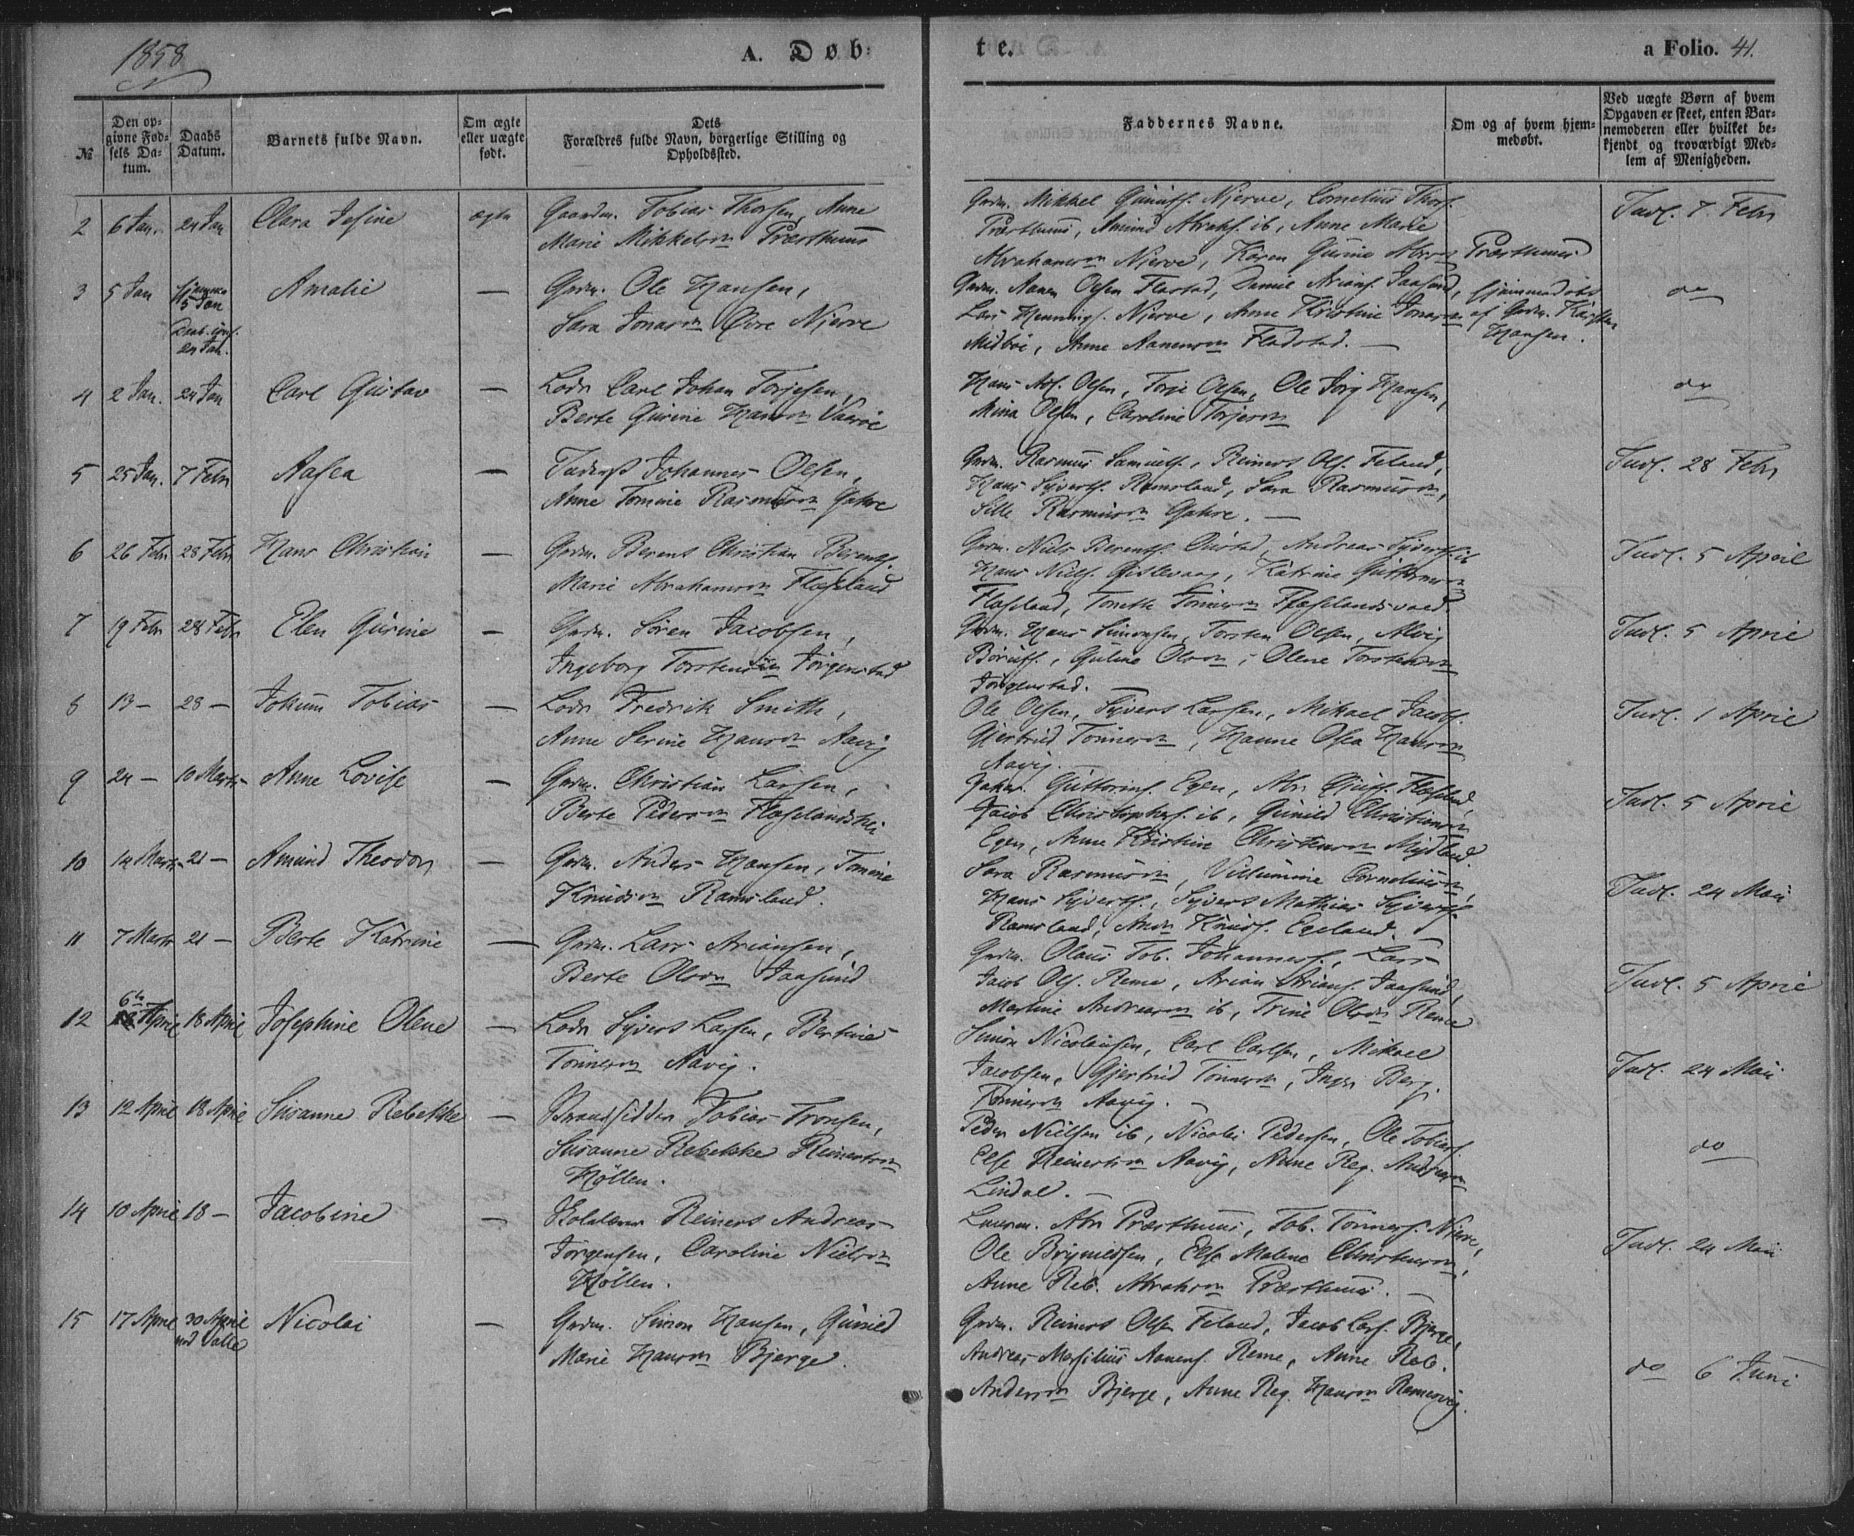 1858
A. Døb-
te.
a Folio. 41.
№
Den op-
givne Fød-
sels Da-
tum.
Daabs
Datum.
Barnets fulde Navn.
Om ægte
eller uægte
født.
Dets
Forældres fulde Navn, borgerlige Stilling og
Opholdssted.
Faddernes Navne.
Om og af hvem hjem-
medøbt.
Ved uægte Børn af hvem
Opgaven er skeet, enten Bar-
nemoderen eller hvilket be-
kjendt og troværdigt Med-
lem af Menigheden.
2 6 Jan. 24 Jan Clara Josine ægte Gaardm. Tobias Thorsen, Anne
Marie Mikkelsdn Præsthuus
Grdm. Mikkel Njerve, Cornelius Thors.
Præsthuus, Amund Abrahs. ib, Anne Marie
Abrahamsdn Njerve, Karen Gurine Præsthuus
Indl. 7 Febr
3 5 Jan Hjemme
5 Jan
24 Jan.
Amalie — Grdm. Ole Hansen,
Sara Jonasdn Øvre Njerve
Grdm. Aanen Olsen Fladstad, Daniel Arians. Jaasund,
Lars Hennings. Njerve, Anne Kristine Jonasdn
Midbøe, Anne Aanensdn Fladstad. —
Hjemmedøbt
af Grdm. Karsten
Hansen.
do
4 2 Jan. 24 Jan Carl Gustav — Lods Carl Johan Torjesen,
Berte Gurine Hansdn Vaarøe
Hans Ad. Olsen, Torje Olsen, Ole Jørg Hansen,
Mina Olsen, Caroline Torjesdn
do
5 25 Jan. 7 Febr Aasea — Johannes Olsen,
Anne Tomine Rasmusdn Gahre
Grdm. Rasmus Samuels., Reinert Ols. Feland,
Hans Syverts. Ramsland, Sara Rasmusdn,
Sille Rasmusdn Gahre. —
Indl. 28 Febr
6 26 Febr 28 Febr Hans Christian — Grdm. Berent Christian Berents.
Marie Abrahamsdn Flaseland
Grdm. Niels Berents. Andreas Syverts. ib
Hans Niels. Gislevaag, Katrine Guttormsdn
Flaseland, Tonette Tønnesdn Flaselandsvaed.
Indl. 5 April
7 19 Febr 28 Febr Elen Gurine — Grdm. Søren Jacobsen,
Ingeborg Torstensdn Jørgenstad
Grdm. Hans Simonsen, Torsten Olsen, Alvig
Guline Olsdn, Olene Torstensdn
Jørgenstad.
Indl. 5 April
8 13 — 28 — Jokum Tobias — Lods Fredrik Smith,
Anne Serine Hansdn Aavig
Ole Olsen, Syvert Larsen, Mikael Jacobs.
Gjertrud Tønnesdn, Hanne Olea Hansdn
Aavig.
Indl. 1 April
9 24 — 10 Marts Anne Lovise — Grdm. Christian Larsen,
Berte Pedersdn Flaselandshei
Guttorms. Egen, Abr. Flaseland,
Jacob Christophers. ib, Gunild Christiansdn
Egen, Anne Kristine Christensdn Mydland.
Indl. 5 April
10 14 Marts 21 — Amund Theodor — Grdm. Anders Hansen, Tomine
Knudsdn Ramsland.
Sara Rasmusdn, Villumine Corneliusdn,
Hans Syverts., Syvert Mathias Syverts.
Ramsland, Andr. Knuds. Egeland.
Indl. 24 Mai
11 7 Marts 21 — Berte Katrine — Grdm. Lars Ariansen,
Berte Olsdn Jaasund
Grdm. Olaus Tob. Johannes., Lars
Jacob Ols. Reme, Arian Arians. Jaasund,
Martine Andreasdn ib, Trine Olsdn Reme
Indl. 5 April
12 6te April 18 April Josephine Olene — Lods Syvert Larsen, Bertine
Tønnesdn Aavig.
Simon Nicolaisen, Carl Carlsen, Mikael
Jacobsen, Gjertrud Tønnesdn, Inger Berg.
Tønnesdn Aavig. —
Indl. 24 Mai
13 12 April 18 April Susanne Rebekke — Strandsidder Tobias Tronsen,
Susanne Rebekke Reinertsdn
Høllen.
Peder Nielsen ib, Nicolai Pedersen, Ole Tobias.
Else Reinertsdn Aavig, Anne Reg. Andreasdn
Lindal. —
do
14 10 April 18 — Jacobine — Skolelærer Reinert Andreas
Jørgensen, Caroline Nielsdn
Høllen.
Abr Præsthuus, Tob. Tønnes. Njerve,
Ole Brynildsen, Else Malene Christensdn,
Anne Reb. Abrahsdn Præsthuus. —
Indl. 24 Mai
15 17 April 30 April
ved Valle
Nicolai — Grdm. Simon Hansen, Gunild
Marie Hansdn Bjerge.
Grdm. Reinert Olsen Feland, Jacob Lars. Bjerge,
Andreas Marsilius Aanens. Reme, Anne Reb.
Andersdn Bjerge, Anne Reg. Hansdn Remesvig.
do 6 Juni